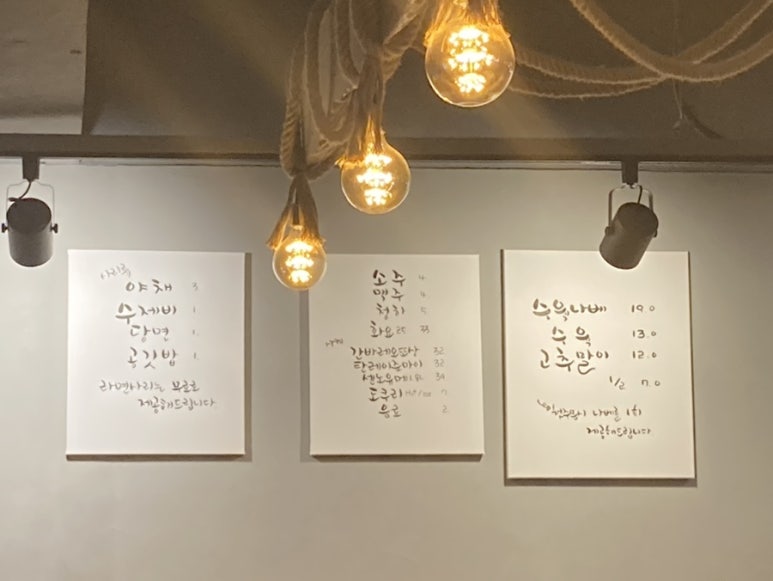 사리류
야채 3
수제비 1
당면 1.
공깃밥 1.
라면사리는 무료로
제공해드립니다.
소주 4
맥주 4
청하 5
화요25 33
간바레오또상 32
탄레이준마이 32
센노유메 34
도쿠리 Hot/Ice 7.
음료 2.
수육나베 19.0
수육 13.0
고추말이 12.0
1/2 7.0
나베류 1회
제공해드립니다.